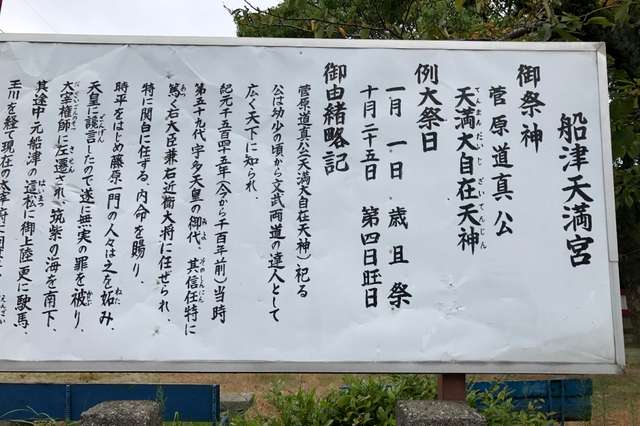 船津天満宮
御祭神
菅原道真公
天満大自在天神
てんまんだいじざいてんじん
例大祭日
一月一日 歳旦祭
十月二十五日 第四日旺日
御由緒略記
菅原道真公(天満大自在天神)祀る
公は幼少の頃から文武両道の達人として
広く天下に知られ、
紀元千五百四十五年(今から千百年前)当時
第五十九代宇多天皇の御代、其信任特に
篤く右大臣兼右近衛大将に任せられ、
特に関白に任する、内命を賜り、
時平をはじめ藤原一門の人々は之を妬み、
天皇に讒言したので遂に無実の罪を被り、
大宰権師に左遷され、筑紫の海を南下、
其途中元船津の這松に御上陸更に駛馬、